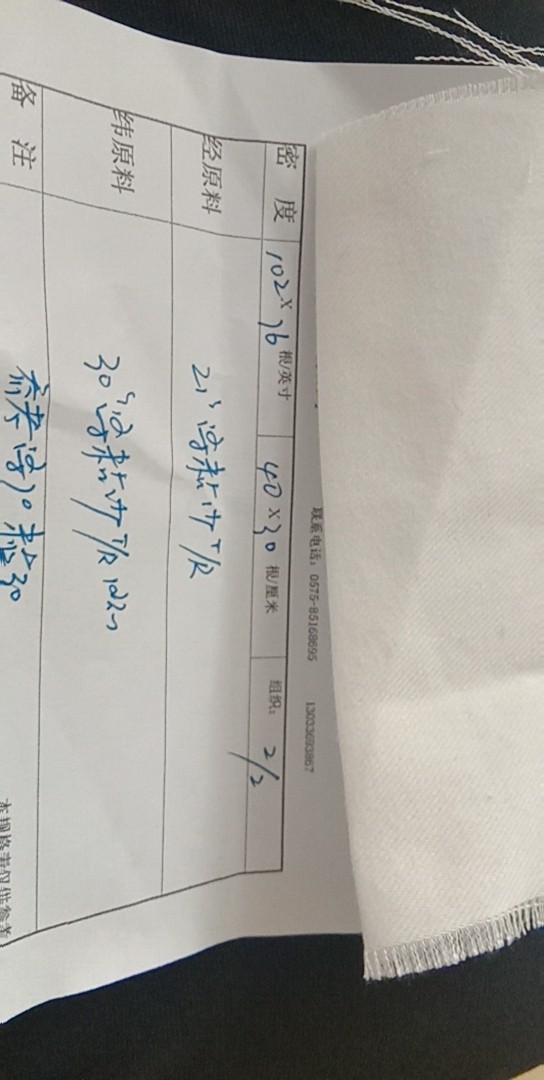 联系电话：0575-85168695 13033693867
密度 102×76 根/英寸 40×30 根/厘米 组织：2/2
经原料 21s 涤粘 T/R
纬原料 30s 涤粘 T/R
备注 参考 涤70 粘30
本规格表仅供参考